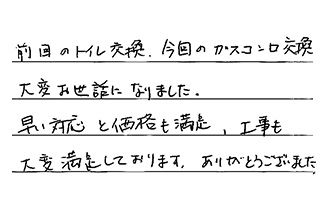 前回のトイレ交換、今回のガスコンロ交換
大変お世話になりました。
早い対応と価格も満足、工事も
大変満足しております。ありがとうございました